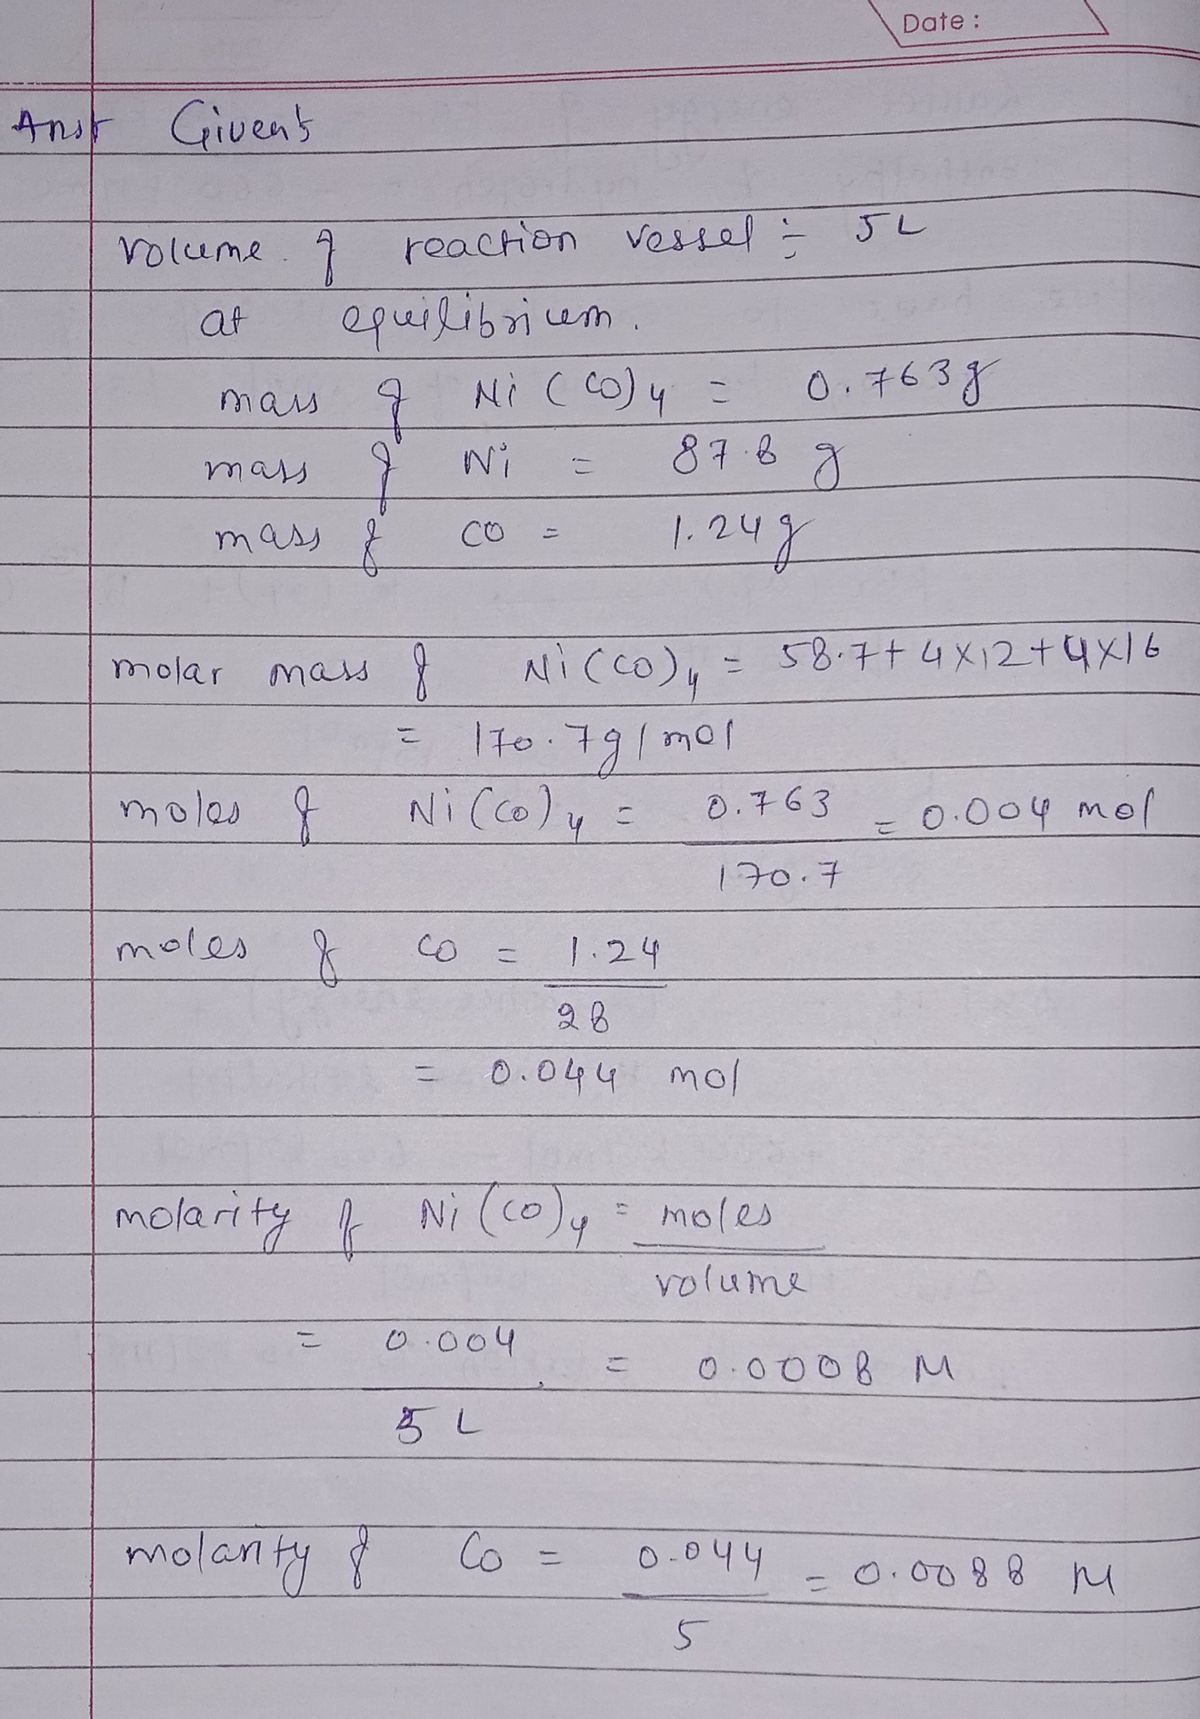 Date :
Ans: Given:
volume of reaction vessel = 5L
at equilibrium.
mass of Ni(CO)4 = 0.763g
mass of Ni = 87.8 g
mass of CO = 1.24g
molar mass of Ni(CO)4 = 58.7+4×12+4×16
= 170.7g/mol
moles of Ni(CO)4 = 0.763 = 0.004 mol
170.7
moles of CO = 1.24
28
= 0.044 mol
molarity of Ni(CO)4 = moles
volume
= 0.004 = 0.0008 M
5 L
molarity of CO = 0.044 = 0.0088 M
5